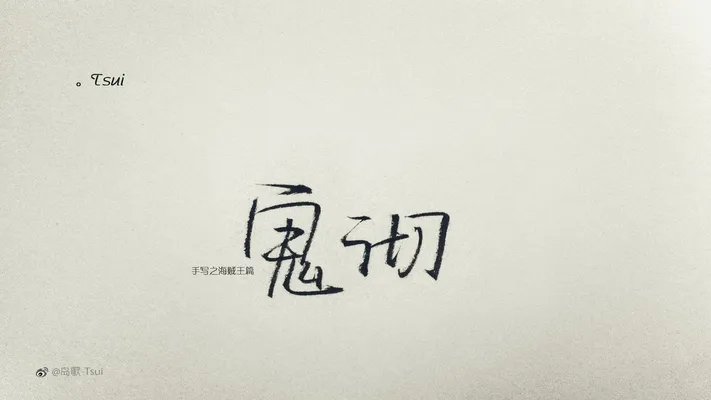 。Tsui
鬼彻
手写之海贼王篇
@岛歌 Tsui